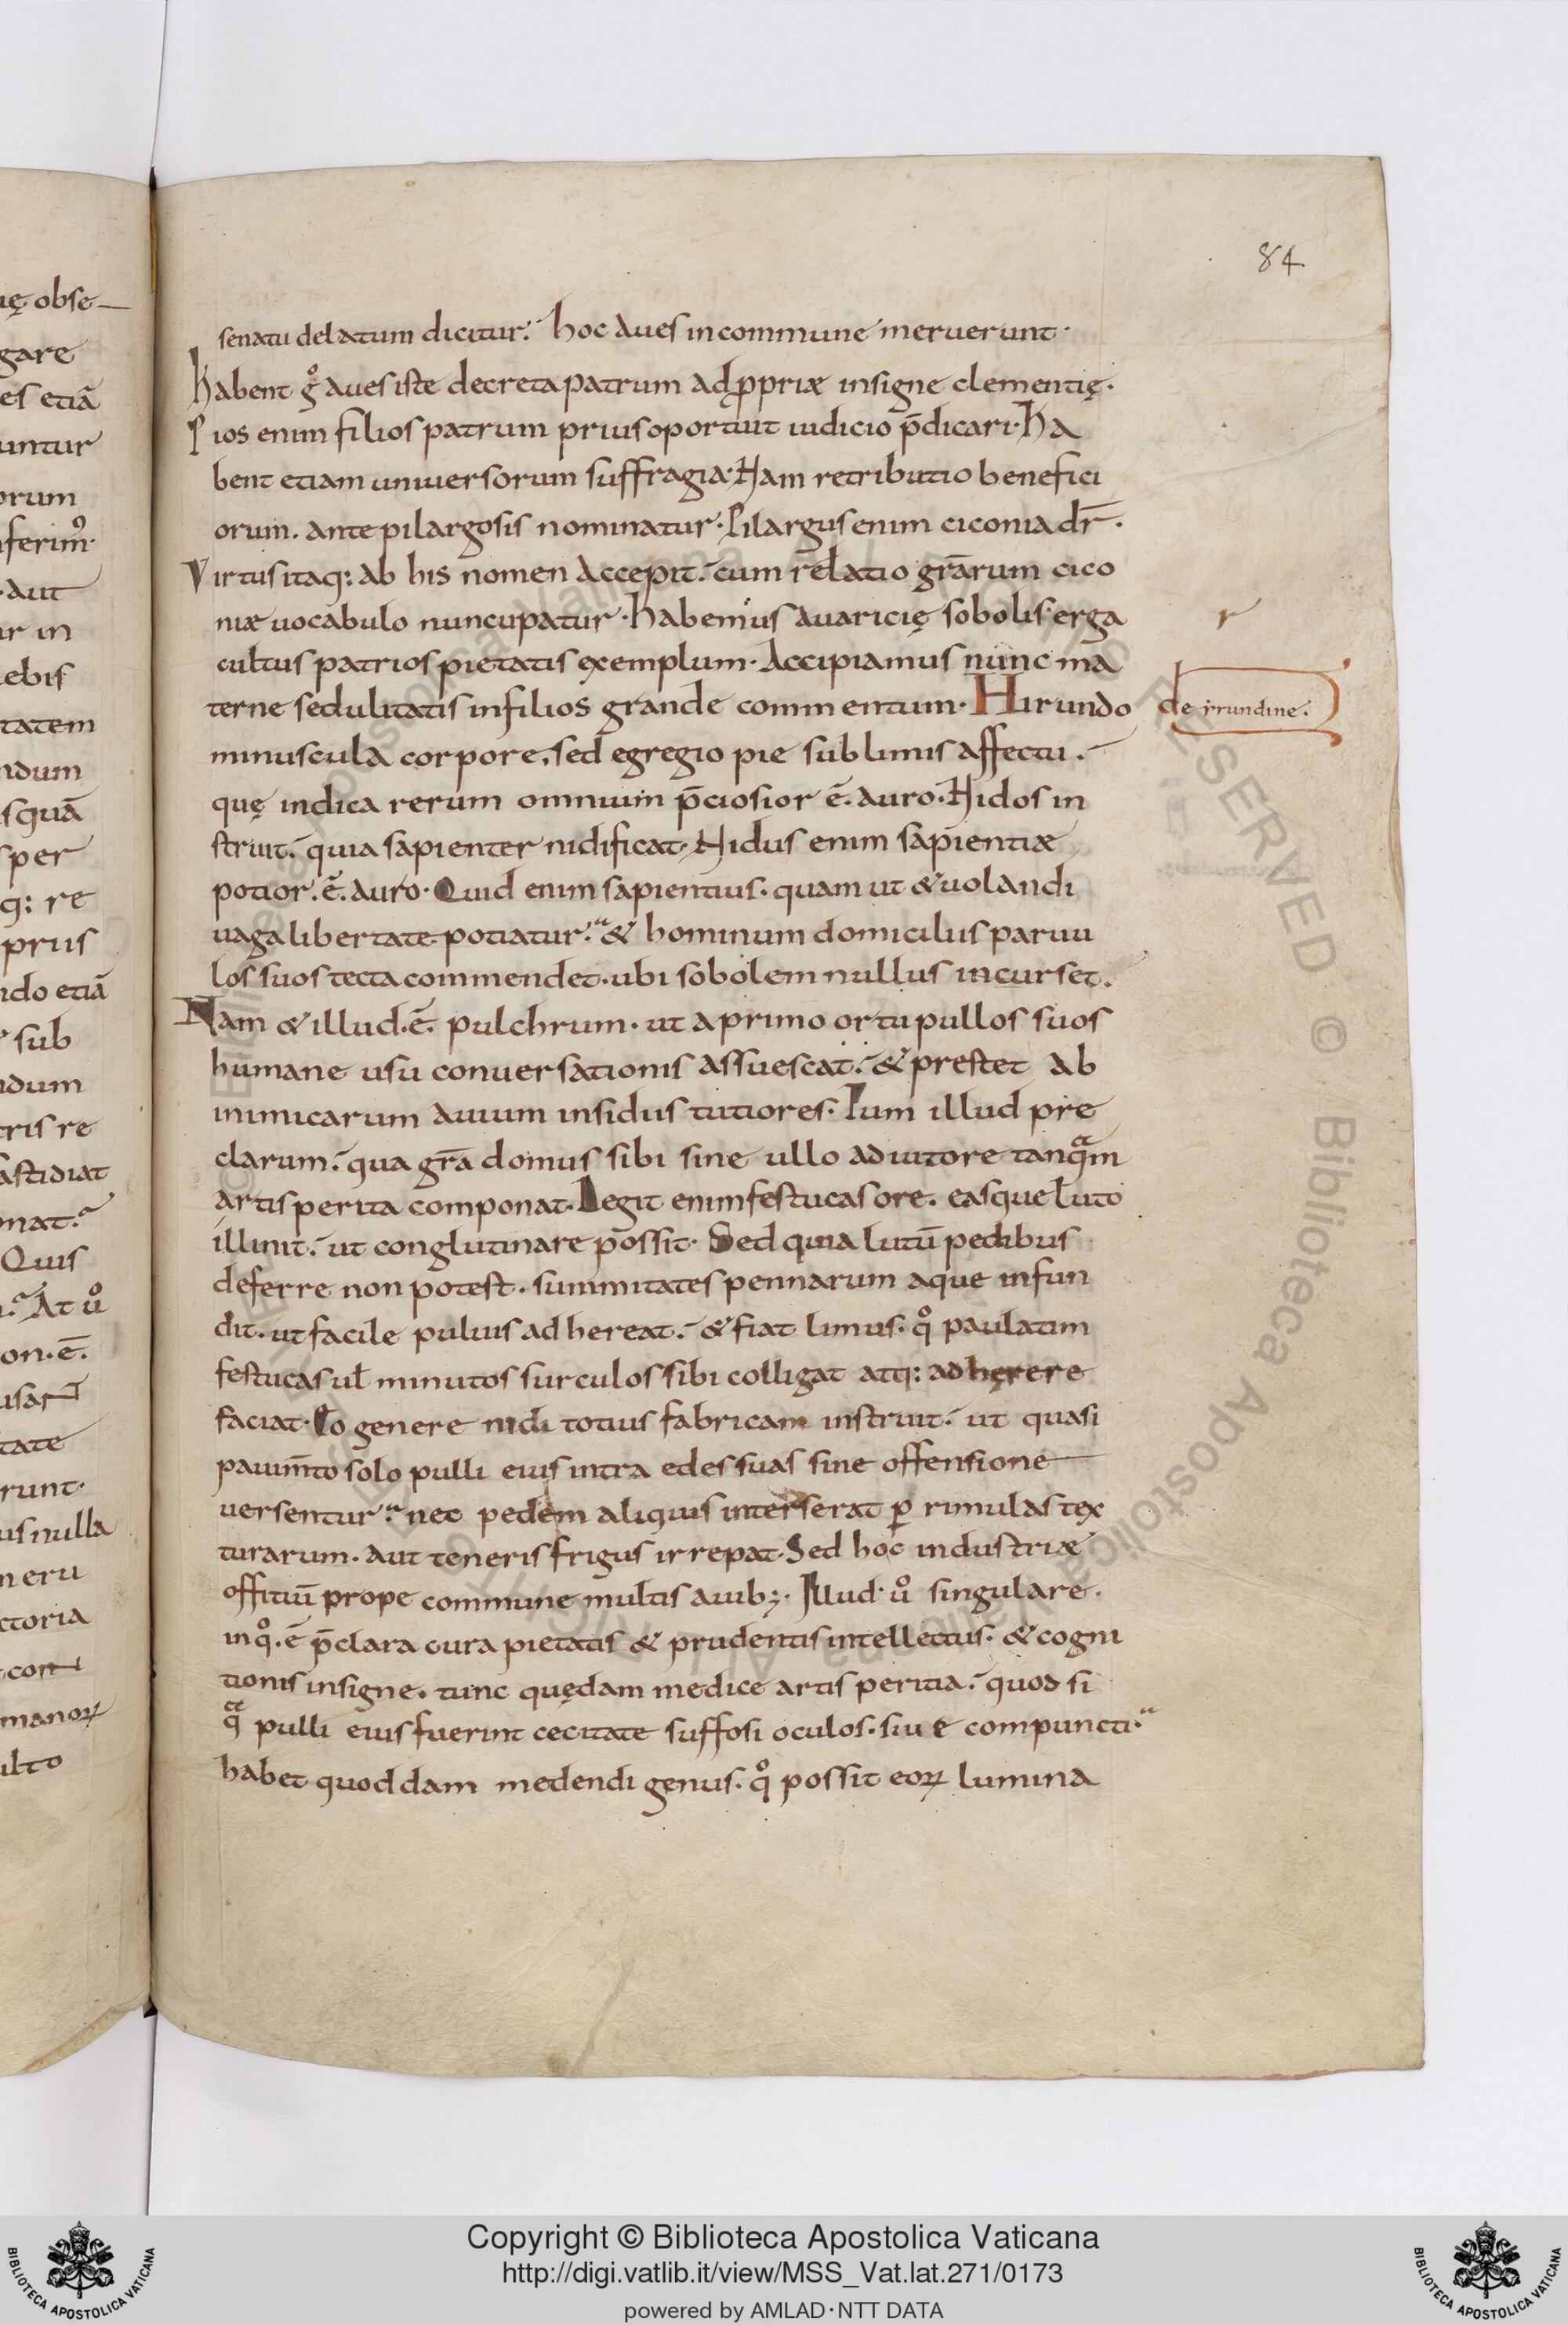 84
senatu delatum dicitur. hoc aues incommune meruerunt·
habent gͦ aues iste decreta patrum ad ꝓpriæ insigne clementię.
Pios enim filios patrum prius oportuit iudicio p̄dicari· Ha
bent etiam uniuersorum suffragia· Nam retributio benefici
orum. antepilargosis nominatur· Pilargus enim ciconia dr̄.
Virtus itaq: ab his nomen accepit. cum relatio gr̄arum cico
niæ uocabulo nuncupatur· habemus auaricię sobolis erga
cultus patrios pietatis exemplum· Accipiamus nunc ma
terne sedulitatis infilios grande commentum· Hirundo
de irundine.
minuscula corpore, sed egregio pie sublimis affectu.
quę indica rerum omnium p̄ciosior ē. auro· Nidos in
struit. quia sapienter nidificat· Nidus enim sapientiæ
potior. ē. auro· Quid enim sapientius. quam ut & uolandi
uaga libertate potiatur. & hominum domiciliis paruu
los suos tecta commendet. ubi sobolem nullus incurset.
Nam & illud. ē. pulchrum. ut a primo ortu pullos suos
humane usu conuersationis assuescat. & prestet ab
inimicarum auium insidiis tutiores. Tum illud pre
clarum. qua gr̄a domus sibi sine ullo adiutore tanqᵃm
artis perita componat. Legit enim festucas ore. easque luto
illinit. ut conglutinare possit. Sed quia lutū pedibus
deferre non potest. summitates pennarum aque infun
dit. ut facile puluis adhereat. & fiat limus. qͦ paulatim
festucas ul̄ minutos surculos sibi colligat atq: adherere
faciat. Eo genere nidi totius fabricam instruit. ut quasi
pauim̄to solo pulli eius intra edes suas sine offensione
uersentur. nec pedem aliquis interserat ꝑ rimulas tex
turarum. aut teneris frigus irrepat. Sed hoc industriæ
offitiū prope commune multis auib;. Illud. uͦ singulare.
in qͦ. ē p̄clara cura pietatis & prudentis intellectus. & cogni
tionis insigne. tunc quędam medice artis peritia. quod si
qᵃ pulli eius fuerint cecitate suffosi oculos. siue compuncti.
habet quoddam medendi genus. qͦ possit eoꝝ lumina
Copyright © Biblioteca Apostolica Vaticana
http://digi.vatlib.it/view/MSS_Vat.lat.271/0173
powered by AMLAD·NTT DATA
BIBLIOTECA APOSTOLICA VATICANA
BIBLIOTECA APOSTOLICA VATICANA